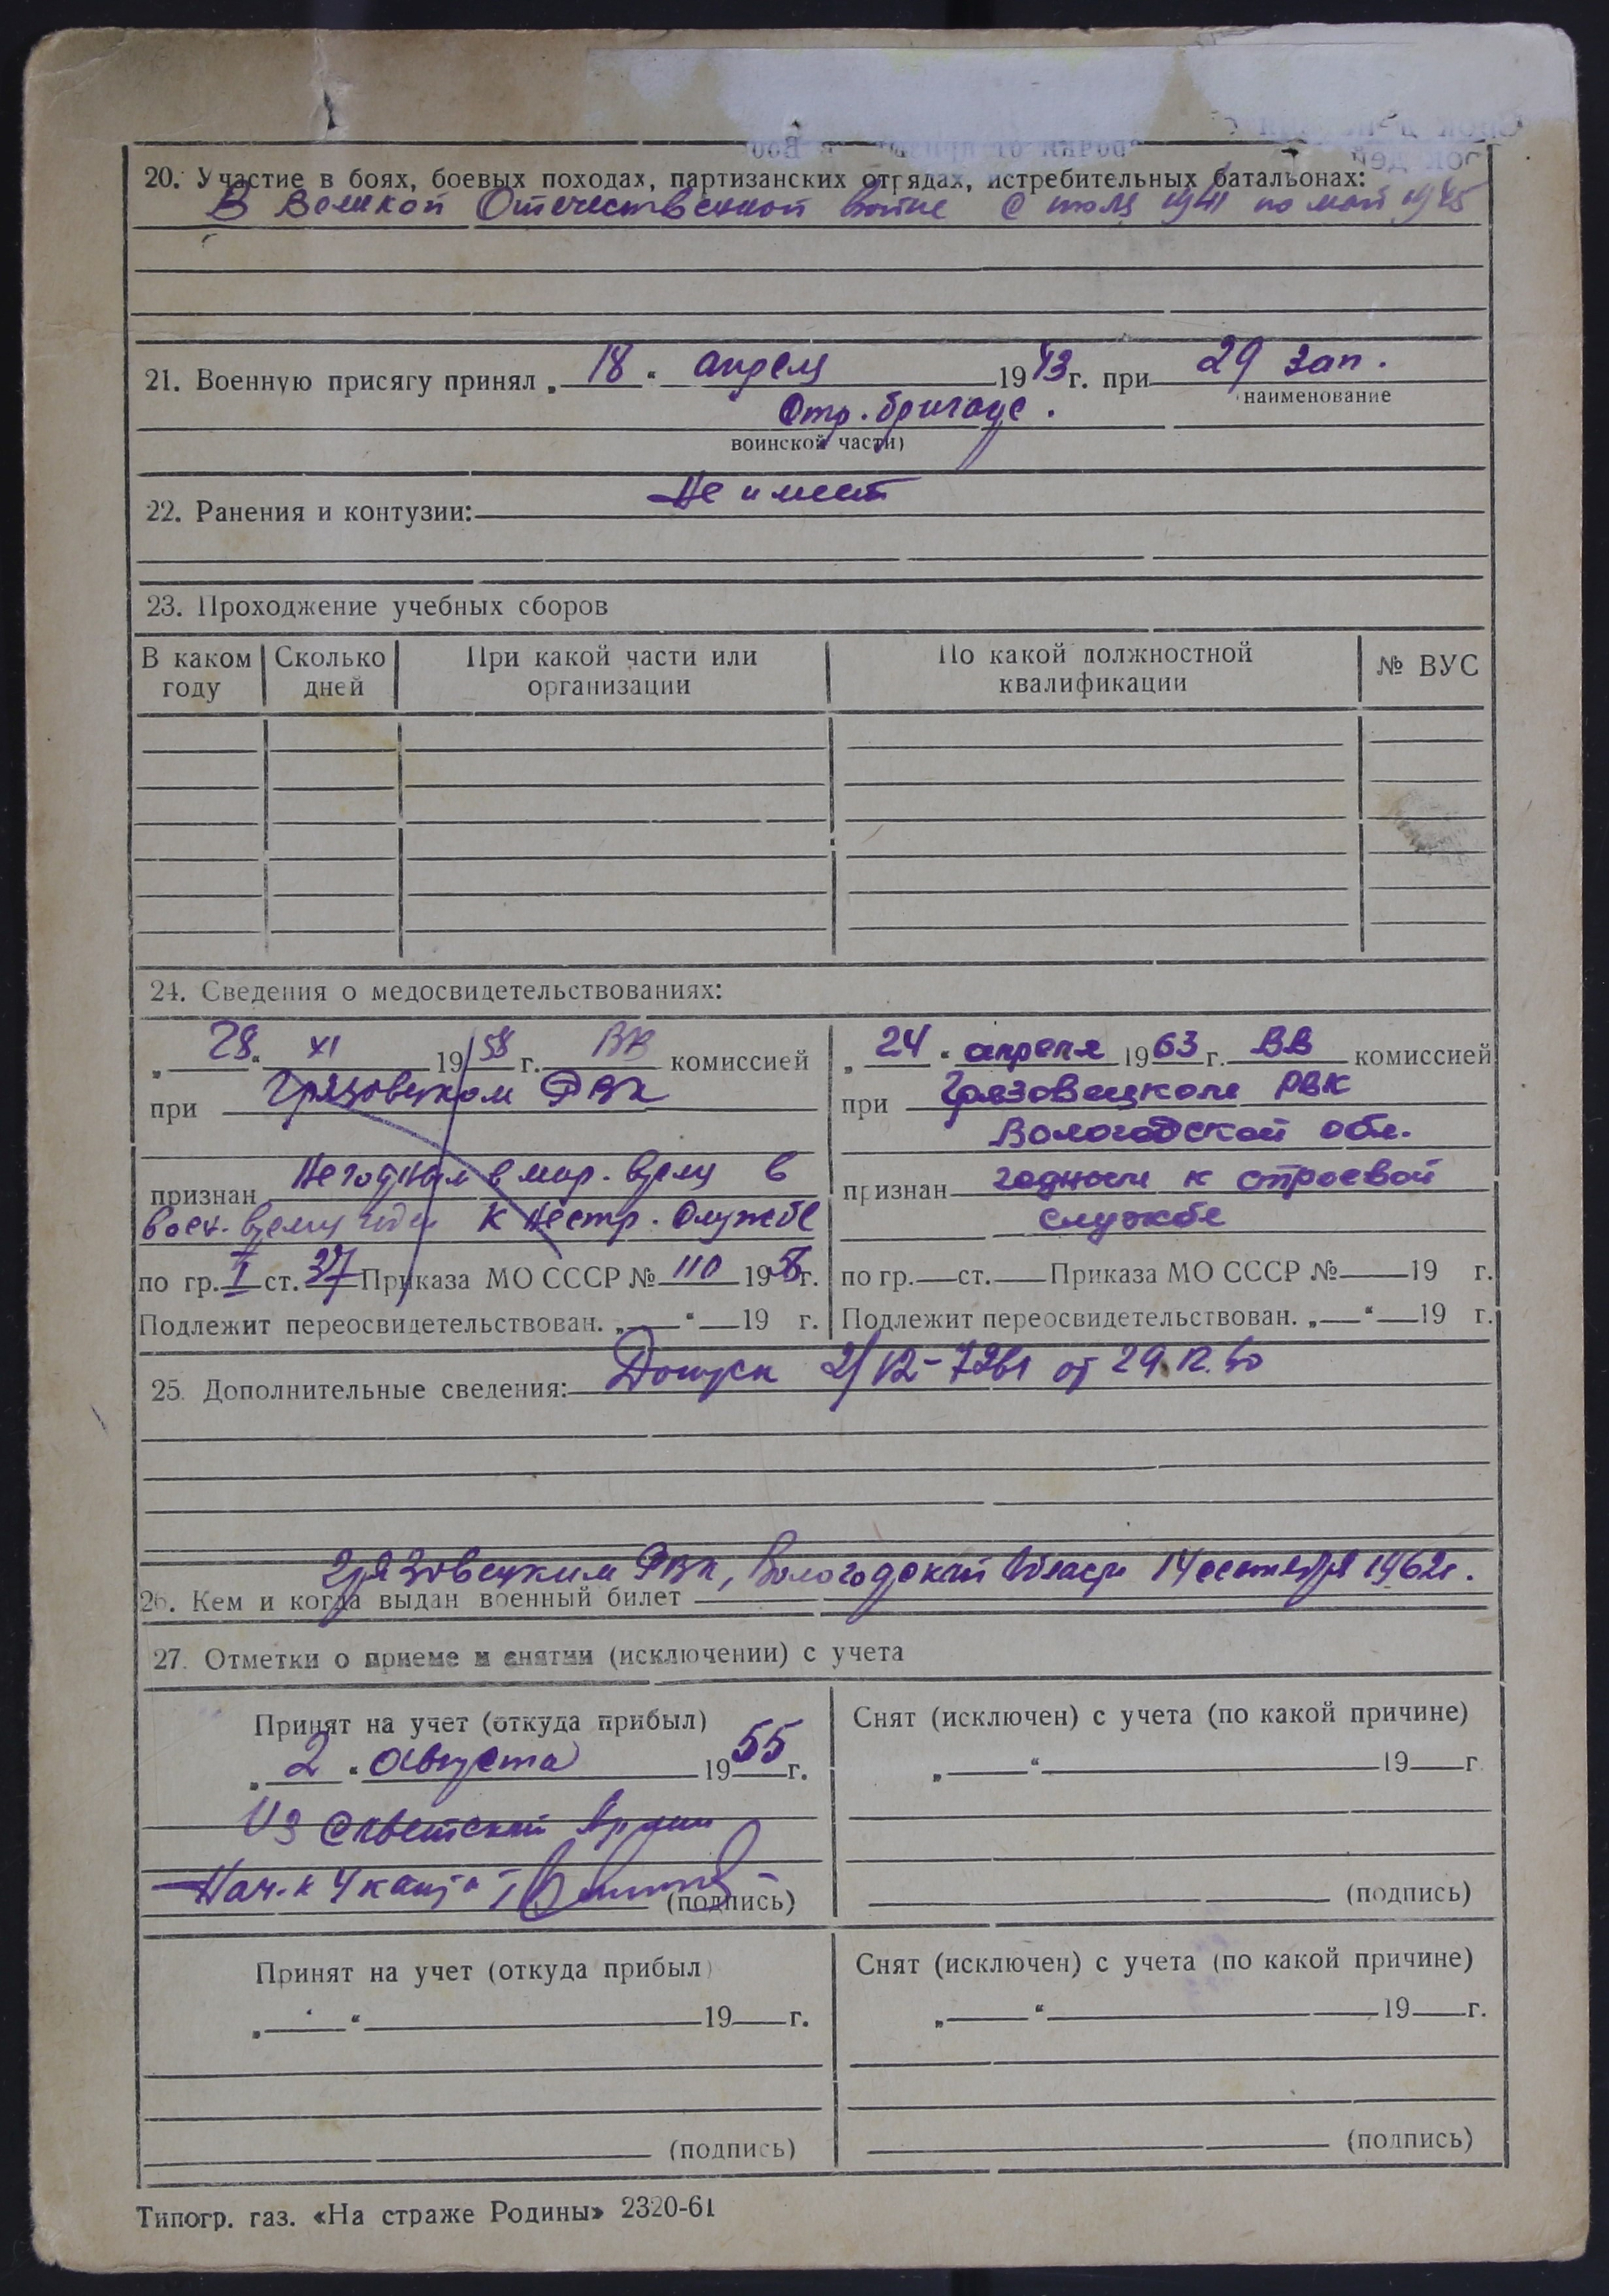 20. Участие в боях, боевых походах, партизанских отрядах, истребительных батальонах:
В Великой Отечественной войне с июля 1941 по май 1945
21. Военную присягу принял „ 18 “ апреля 1943 г. при 29 зап.
наименование
Отр. бригаде.
воинской части)
22. Ранения и контузии: Не имеет
23. Прохождение учебных сборов
В каком году | Сколько дней | При какой части или организации | По какой должностной квалификации | № ВУС
24. Сведения о медосвидетельствованиях:
„ 28 “ XI 1958 г. ВВ комиссией
при Грязовецком РВК
признан Негодным в мир. время в
воен. время годен к нестр. службе
по гр. I ст. 37 Приказа МО СССР № 110 195 г.
Подлежит переосвидетельствован. „ “ 19 г.
„ 24 “ апреля 1963 г. ВВ комиссией
при Грязовецком РВК
Вологодской обл.
признан годным к строевой
службе
по гр. ст. Приказа МО СССР № 19 г.
Подлежит переосвидетельствован. „ “ 19 г.
25. Дополнительные сведения: Допуск от 29.12.60
Грязовецким РВК, Вологодской области 14 сентября 1962г.
26. Кем и когда выдан военный билет
27. Отметки о приеме и снятии (исключении) с учета
Принят на учет (откуда прибыл)
„ 2 “ августа 1955 г.
Из Советской Армии
Нач-к 4 (подпись)
Снят (исключен) с учета (по какой причине)
„ “ 19 г.
(подпись)
Принят на учет (откуда прибыл)
„ “ 19 г.
(подпись)
Снят (исключен) с учета (по какой причине)
„ “ 19 г.
(подпись)
Типогр. газ. «На страже Родины» 2320-61